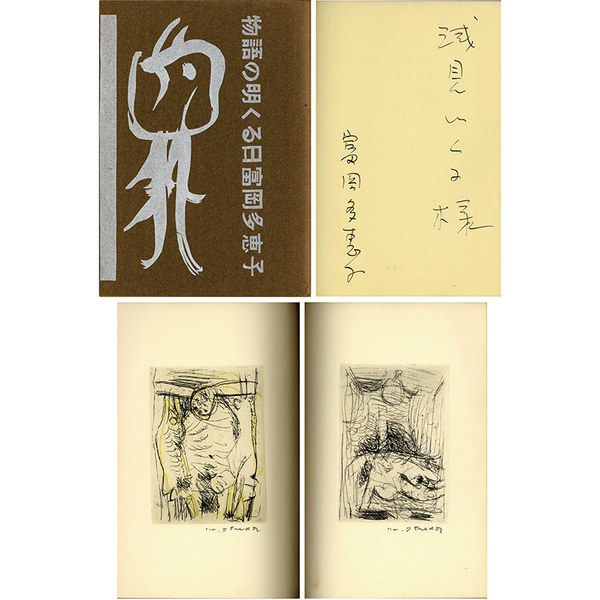 物語の明くる日 富岡多恵子
浅見いく子様
富岡多恵子